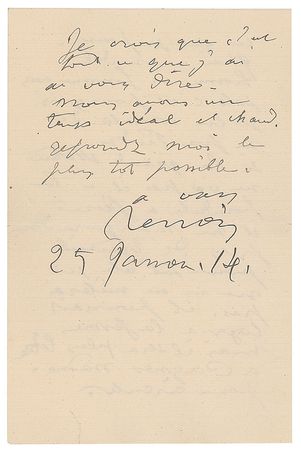 Je crois que c'est
tout ce que j'ai
à vous dire -
nous avons un
temps idéal et chaud.
repondez moi le
plus tot possible.
a vous
Renoir
25 Janv. 14.